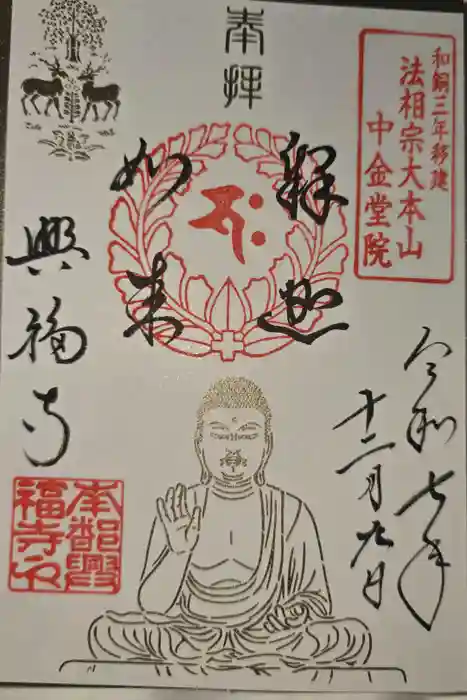 奉拝
和銅三年移建
法相宗大本山
中金堂院
釈迦
如来
令和七年
十二月九日
興福寺
南都興
福寺印